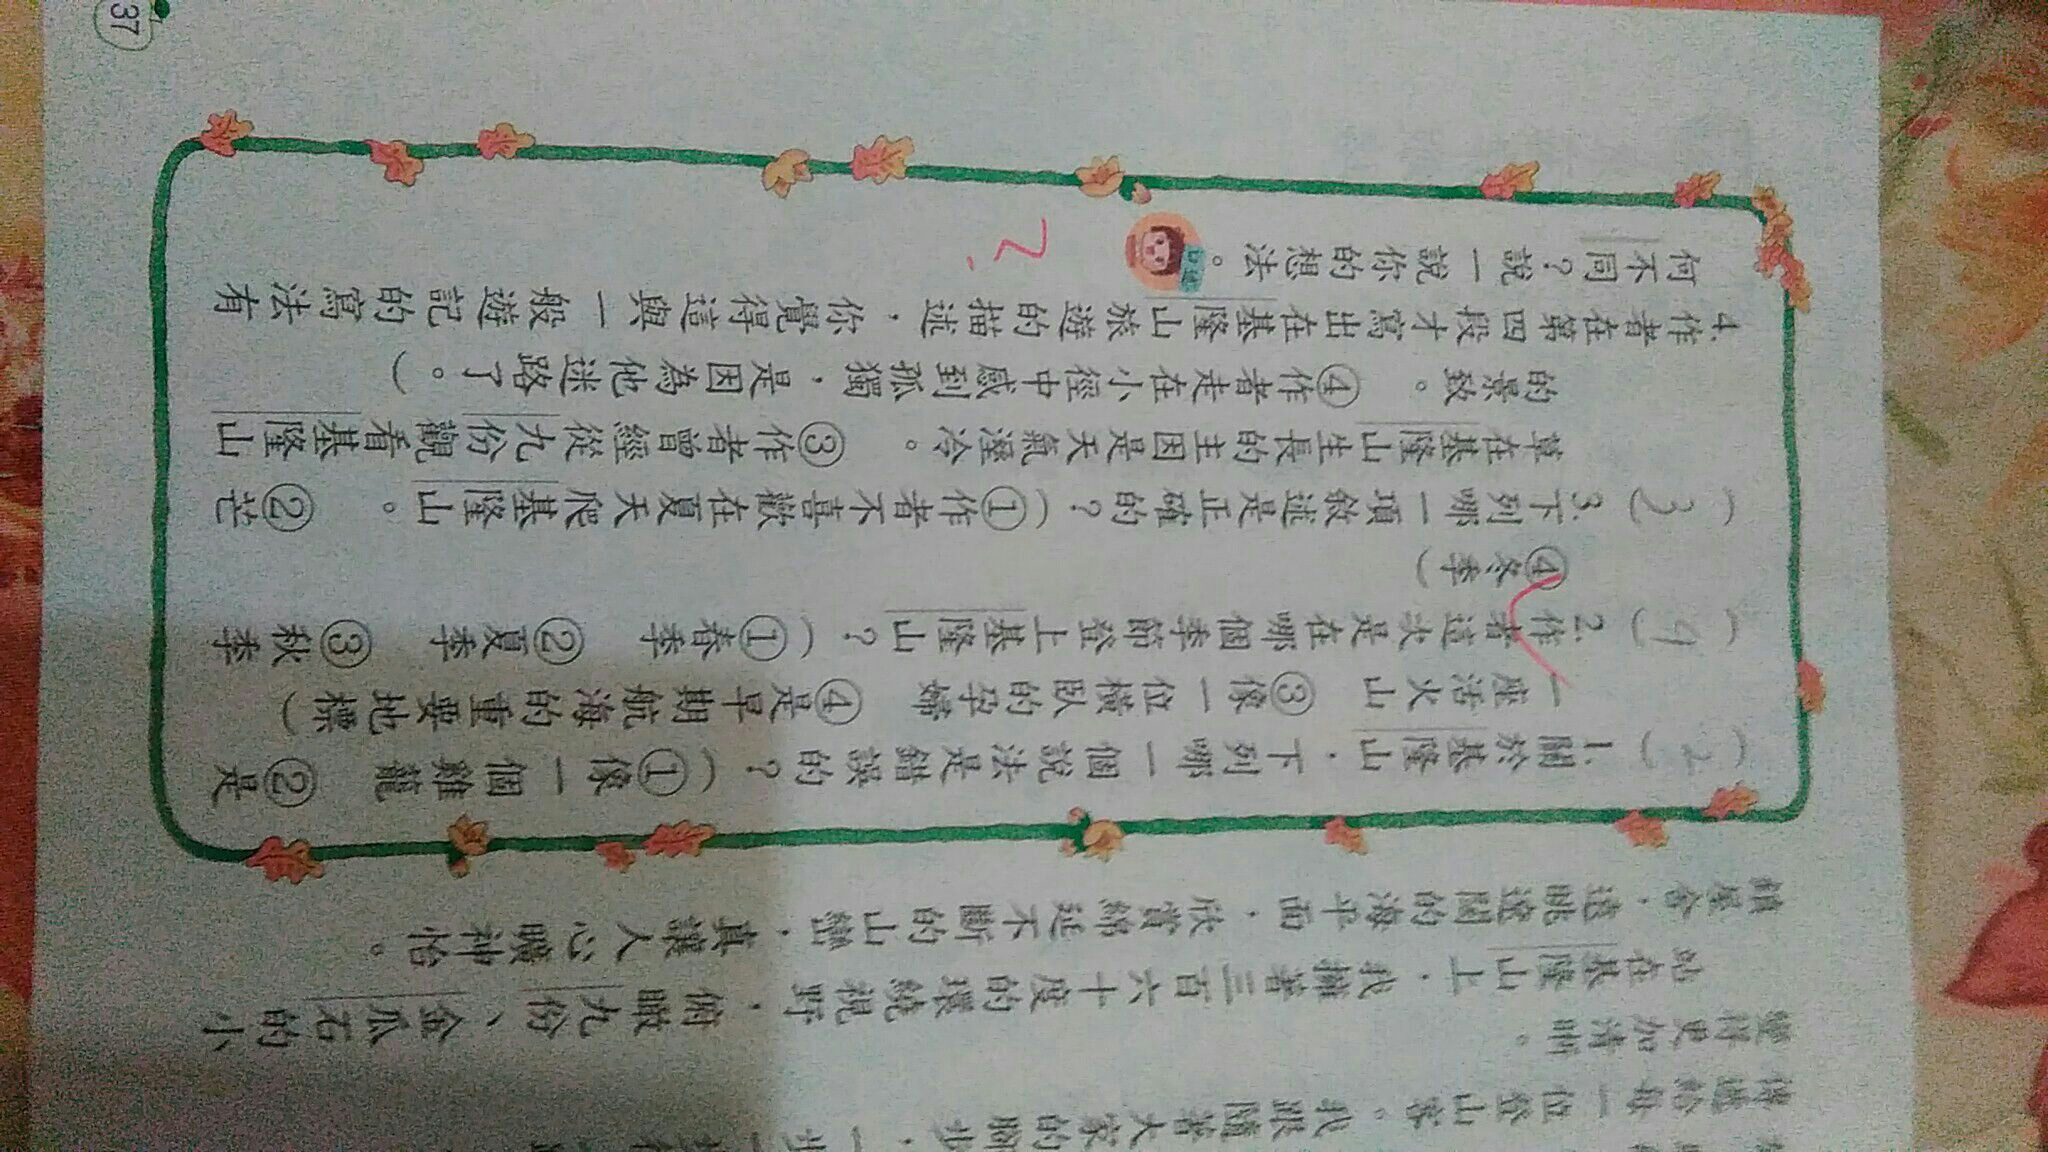 傳遞給每一位登山客。我跟隨著大家的腳步，一步
變得更加清晰。
站在基隆山上，我擁著三百六十度的環繞視野，俯瞰九份、金瓜石的小
鎮屋舍，遠眺遼闊的海平面，欣賞綿延不斷的山巒，真讓人心曠神怡。
(2) 1.關於基隆山，下列哪一個說法是錯誤的？(①像一個雞籠 ②是
一座活火山 ③像一位橫臥的孕婦 ④是早期航海的重要地標)
(4) 2.作者這次是在哪個季節登上基隆山？(①春季 ②夏季 ③秋季
④冬季)
(3) 3.下列哪一項敘述是正確的？(①作者不喜歡在夏天爬基隆山。 ②芒
草在基隆山生長的主因是天氣溼冷。 ③作者曾經從九份觀看基隆山
的景致。 ④作者走在小徑中感到孤獨，是因為他迷路了。)
4.作者在第四段才寫出在基隆山旅遊的描述，你覺得這與一般遊記的寫法有
何不同？說一說你的想法。
37